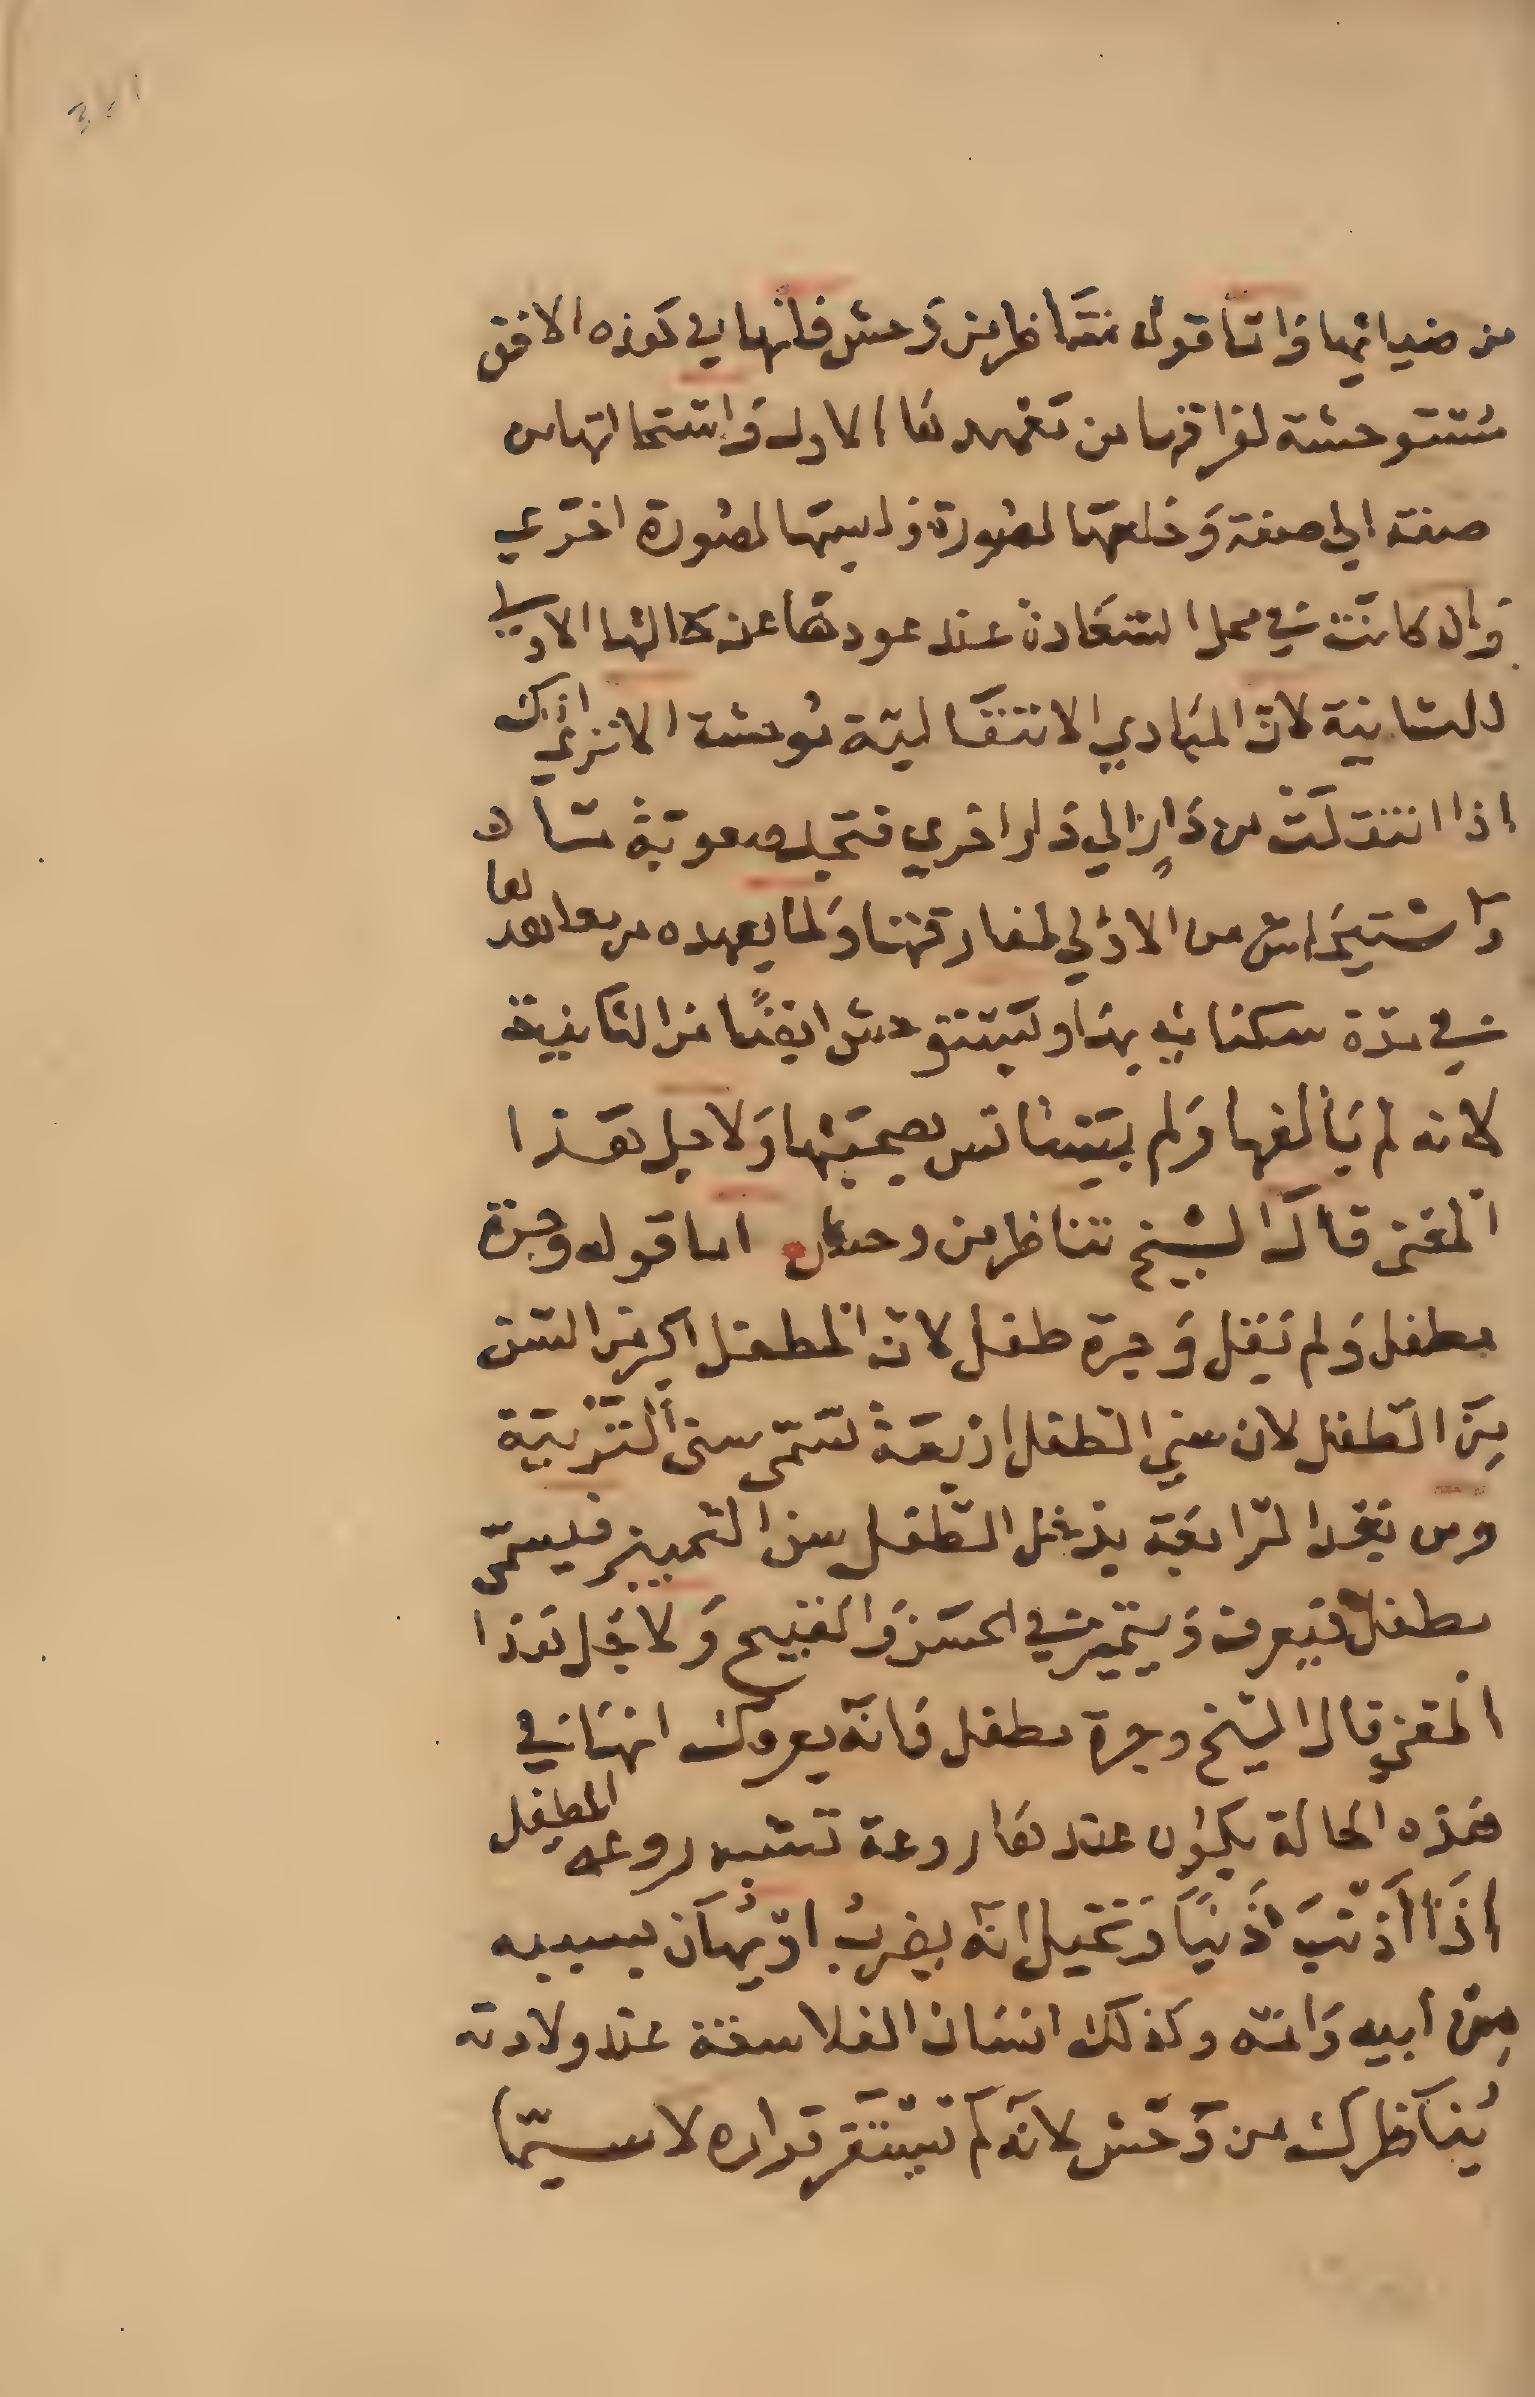 من ضيائها وَاتا قوله تنَاظر من وَحش فانّها في هَذه الافق
مُستوحشة لفراقها من مَعْهدهَا الاول وَاستحالتها من
صفة الي صفة وَخلعتها لصُورة وَلبستها لصُورة اخرَي
وَان كانَت في محل السّعَادة عند عودهَا عن حَالتها الاولي
للثانية لانّ المبَادي الانتقَاليّة مُوحشة الا ترَي انك
اذا انتقلَتْ من دَارٍ الي دَار اخري فتجد صعوبَةً شَاقة
وَاسْتيحَاش من الاوْلي لمفارقتها وَلما يعهده من معاهدها
في مدّة سكنائه بهَا ويَستوحش ايضًا من الثَانية
لانه لم يَألفها وَلم يَستانس بصحبَتها وَلاجل هَذا
المعَني قالَ الشيخ تناظر من وحش اما قوله وجرة
بمطفل وَلم يَقل وَجرة طفل لانّ المطفل اكبر في السّن
مِنَ الطّفل لان سني الطّفل ارْبعَة تسَمّى سني التّربيَة
ومن بَعْد الرّابعَة يدْخل الطّفل سن التّمييز فيسمّى
مطفل فيَعرف وَيتميّز في الحسَن وَالقبيح وَلاجَل هَذا
المعَني قال الشيخ وجرة مطفل فانّه يعرفك انهَا في
هَذه الحالة يكون عندهَا روعة تشبه روعه المطفل
اذَا أذنَبَ ذَنبًا وَتخيل انّه يضرَبُ اوْ يهَان بسببه
مِنْ ابيه وَامّه وكذلك انسَان الفلاسفة عند ولادته
يُناظرك من وَحْش لانّه لَم تَستقَر قراره لا سيّما